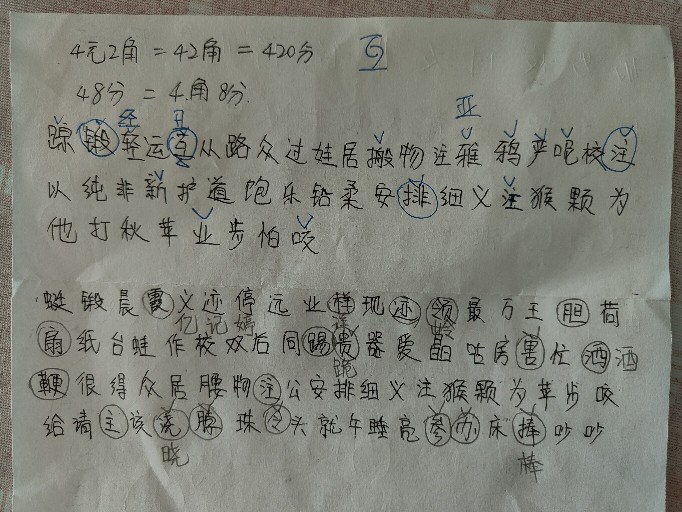 4元2角=42角=420分
48分=4角8分
亚
踪锻轻运互从路众过娃居搬物注雅鸦严呢校注
以纯非新护道饱乐铅柔安排细义注猴颗为
他打秋苹业步怕咬
蜓锻晨霞义迹停远业样现迹领最万王胆荷
亿记嫣
扇纸台蛙作校双后同踢贵器爱晶咕房害忙洒洒
跪
鞭很得众居腰物注公安排细义注猴颗为苹步咬
给请主该浇腺珠令头就午睡亮参办床捧吵吵
晓 棒